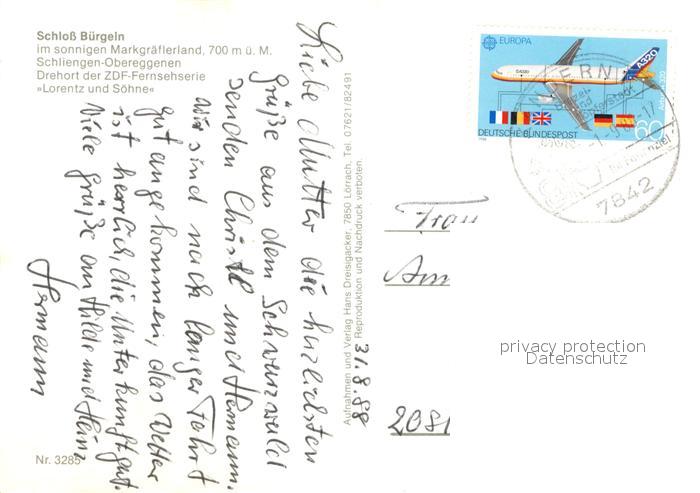 Schloß Bürgeln
im sonnigen Markgräflerland, 700 m ü. M.
Schliengen-Obereggenen
Drehort der ZDF-Fernsehserie
»Lorentz und Söhne«
Liebe Mutter die herzlichsten
Grüße aus dem Schwarzwald
senden Christel und Hermann.
Wir sind nach langer Fahrt
gut angekommen, das Wetter
ist herrlich, die Unterkunft gut.
Viele Grüße an Hilde und Heinz
Hermann
Nr. 3285
Aufnahmen und Verlag Hans Dreisigacker, 7850 Lörrach, Tel. 07621/82491
Reproduktion und Nachdruck verboten.
31.8.88
EUROPA
A320
Airbus A320
DEUTSCHE BUNDESPOST
60
1988
7842
Frau
Am
2081
privacy protection
Datenschutz